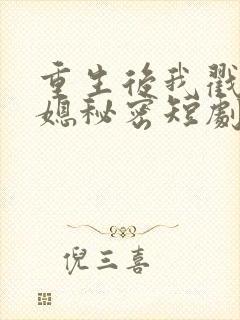 重生後我戳
媳秘密短劇
倪三喜